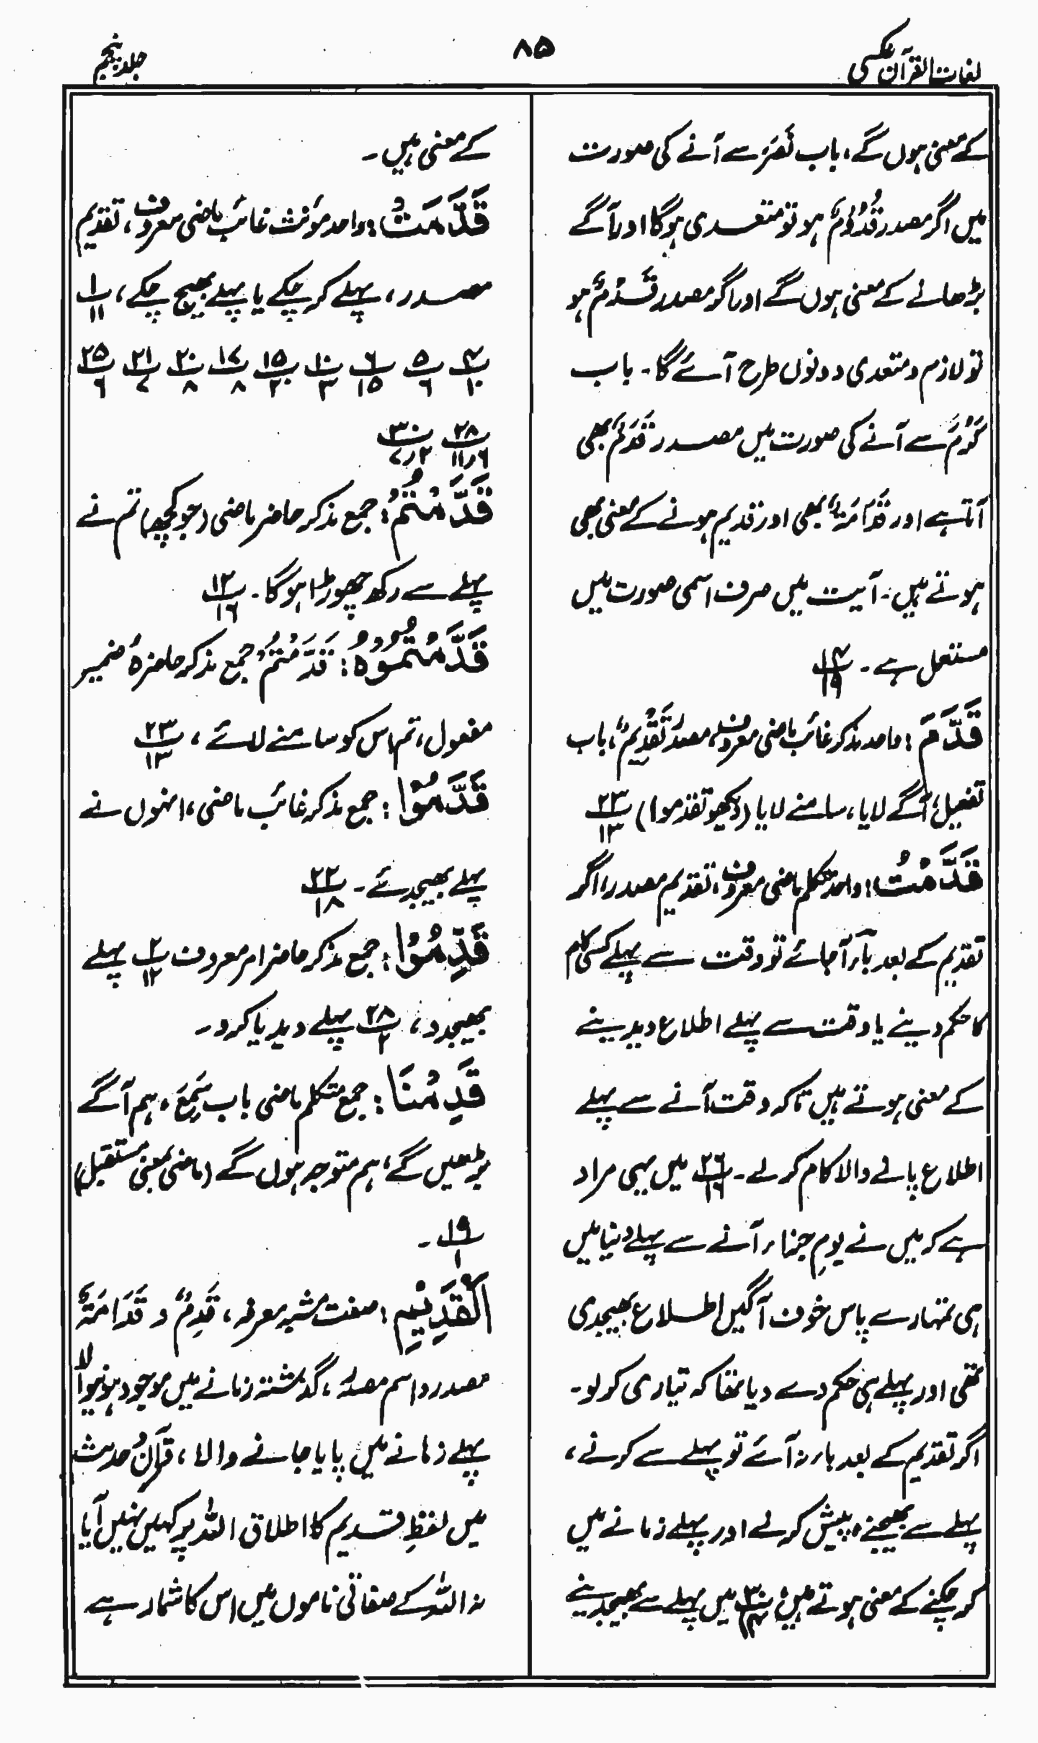 لغات القرآن عکسی
۸۵
جلد پنجم
کے معنی ہوں گے، باب نَصَرَ سے آنے کی صورت
میں اگر مصدر قُدُوْمٌ ہو تو متعدی ہوگا اور آگے
بڑھانے کے معنی ہوں گے اور اگر مصدر قَدْمٌ ہو
تو لازم و متعدی دونوں طرح آئے گا۔ باب
کَرُمَ سے آنے کی صورت میں مصدر قَدَمٌ بھی
آتا ہے اور قَدَامَۃٌ بھی اور قدیم ہونے کے معنی بھی
ہوتے ہیں۔ آیت میں صرف اسمی صورت میں
مستعمل ہے۔
قَدَّمَ: واحد مذکر غائب ماضی معروف، مصدر تَقْدِیْمٌ، باب
تفعیل، آگے لایا، سامنے لایا (دیکھو تقدموا) ۲۳/۱۳
قَدَّمْتُ: واحد متکلم ماضی معروف، تقدیم مصدر اگر
تقدیم کے بعد بآر آجائے تو وقت سے پہلے کسی کام
کا حکم دینے یا وقت سے پہلے اطلاع دیدینے
کے معنی ہوتے ہیں تاکہ وقت آنے سے پہلے
اطلاع پانے والا کام کرلے۔ ۲۶/۱۶ میں یہی مراد
ہے کہ میں نے یومِ جزاء آنے سے پہلے دنیا میں
ہی تمہارے پاس خوف آگیں اطلاع بھیجدی
تھی اور پہلے ہی حکم دے دیا تھا کہ تیاری کرلو۔
اگر تقدیم کے بعد بار نہ آئے تو پہلے سے کرنے،
پہلے سے بھیجنے، پیش کرنے اور پہلے زمانے میں
کر چکنے کے معنی ہوتے ہیں، ۳۰/۱۴ میں پہلے سے بھیجدینے
کے معنی ہیں۔
قَدَّمَتْ: واحد مؤنث غائب ماضی معروف، تقدیم
مصدر، پہلے کر چکے یا پہلے بھیج چکے، ۱/۱۱
۴/۱۰ ۵/۶ ۶/۱۵ ۱۰/۳ ۱۵/۲۰ ۱۷/۸ ۲۰/۸ ۲۱/۷ ۲۵/۶
۲۸/۱۱٫۶ ۳۰/۷٫۲
قَدَّمْتُمْ: جمع مذکر حاضر ماضی (جو کچھ) تم نے
پہلے سے رکھ چھوڑا ہوگا۔ ۱۲/۱۶
قَدَّمْتُمُوْہُ: قَدَّمْتُمْ جمع مذکر حاضر ہٗ ضمیر
مفعول، تم اس کو سامنے لائے، ۲۳/۱۳
قَدَّمُوْا: جمع مذکر غائب ماضی، انہوں نے
پہلے بھیجدئے۔ ۲۲/۱۸
قَدِّمُوْا: جمع مذکر حاضر امر معروف ۲/۱۲ پہلے
بھیجدو، ۲۸/۲ پہلے دیدیا کرو۔
قَدِمْنَا: جمع متکلم ماضی باب سَمِعَ، ہم آگے
بڑھیں گے، ہم متوجہ ہوں گے (ماضی بمعنی مستقبل)
۱۹/۱۔
اَلْقَدِیْمِ: صفت مشبہ معرفہ، قَدِمٌ و قَدَامَۃٌ
مصدر و اسم مصدر، گذشتہ زمانے میں موجود ہونیوالا
پہلے زمانے میں پایا جانے والا، قرآن و حدیث
میں لفظِ قدیم کا اطلاق اللہ پر کہیں نہیں آیا
نہ اللہ کے صفاتی ناموں میں اس کا شمار ہے